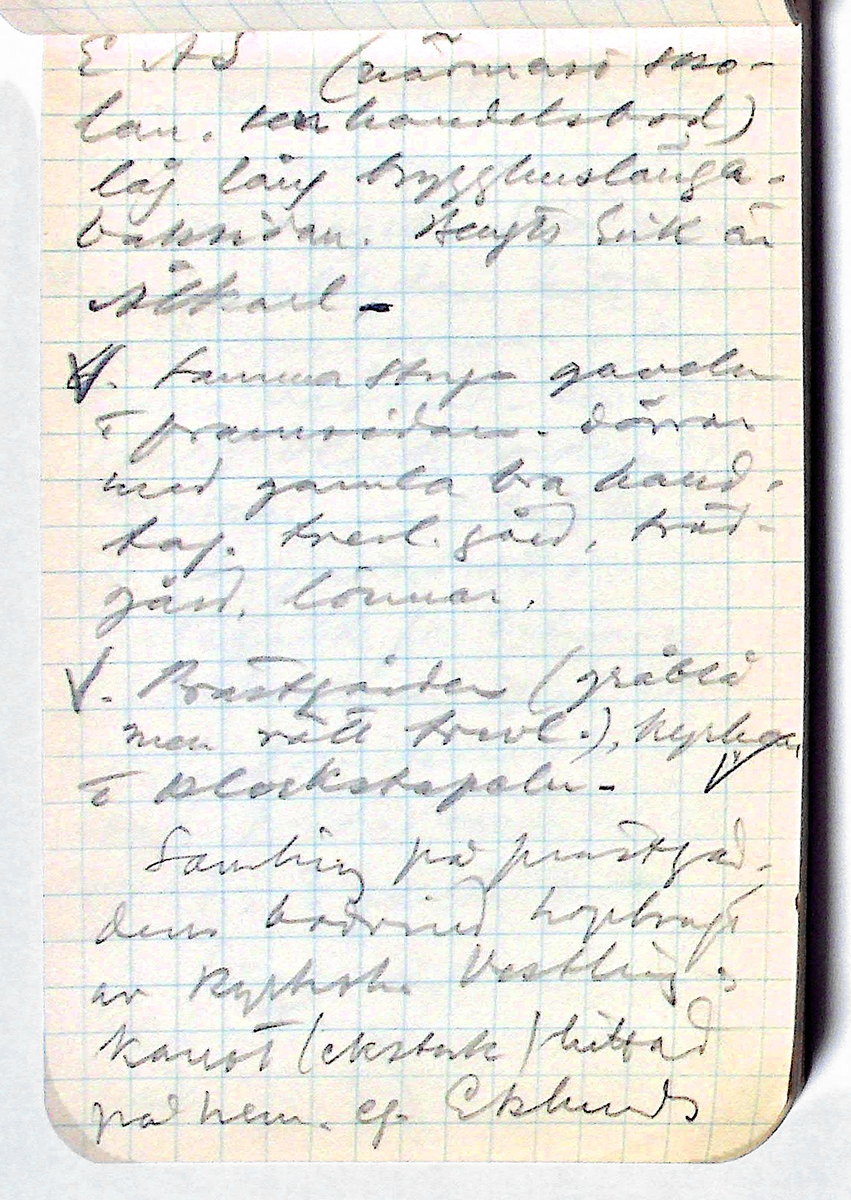 E AS (närmast sko-
lan. handelsbod)
låg lång brygghuslänga.
baksidan. Bengts Erik än
Ålkarl -
V. Samma gaveln
t framsidan. Dörrar
med gamla bra hand-
tag. trevl. gård, träd-
gård, lönnar.
V. Prästgården (gråblå
men rätt trevl.), kyrkan
t klockstapeln -
Samling på prästgår-
dens bodvind hopbragt
av kyrkoh. Vestling.
Kanot (ekstock) hittad
på hem. eg. Eklunds